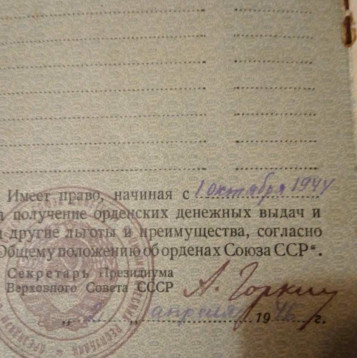 Имеет право, начиная с 1 октября 1944
а получение орденских денежных выдач и
а другие льготы и преимущества, согласно
Общему положению об орденах Союза ССР".
Секретарь Президиума
Верховного Совета СССР А. Горкин
апреля 194 г.